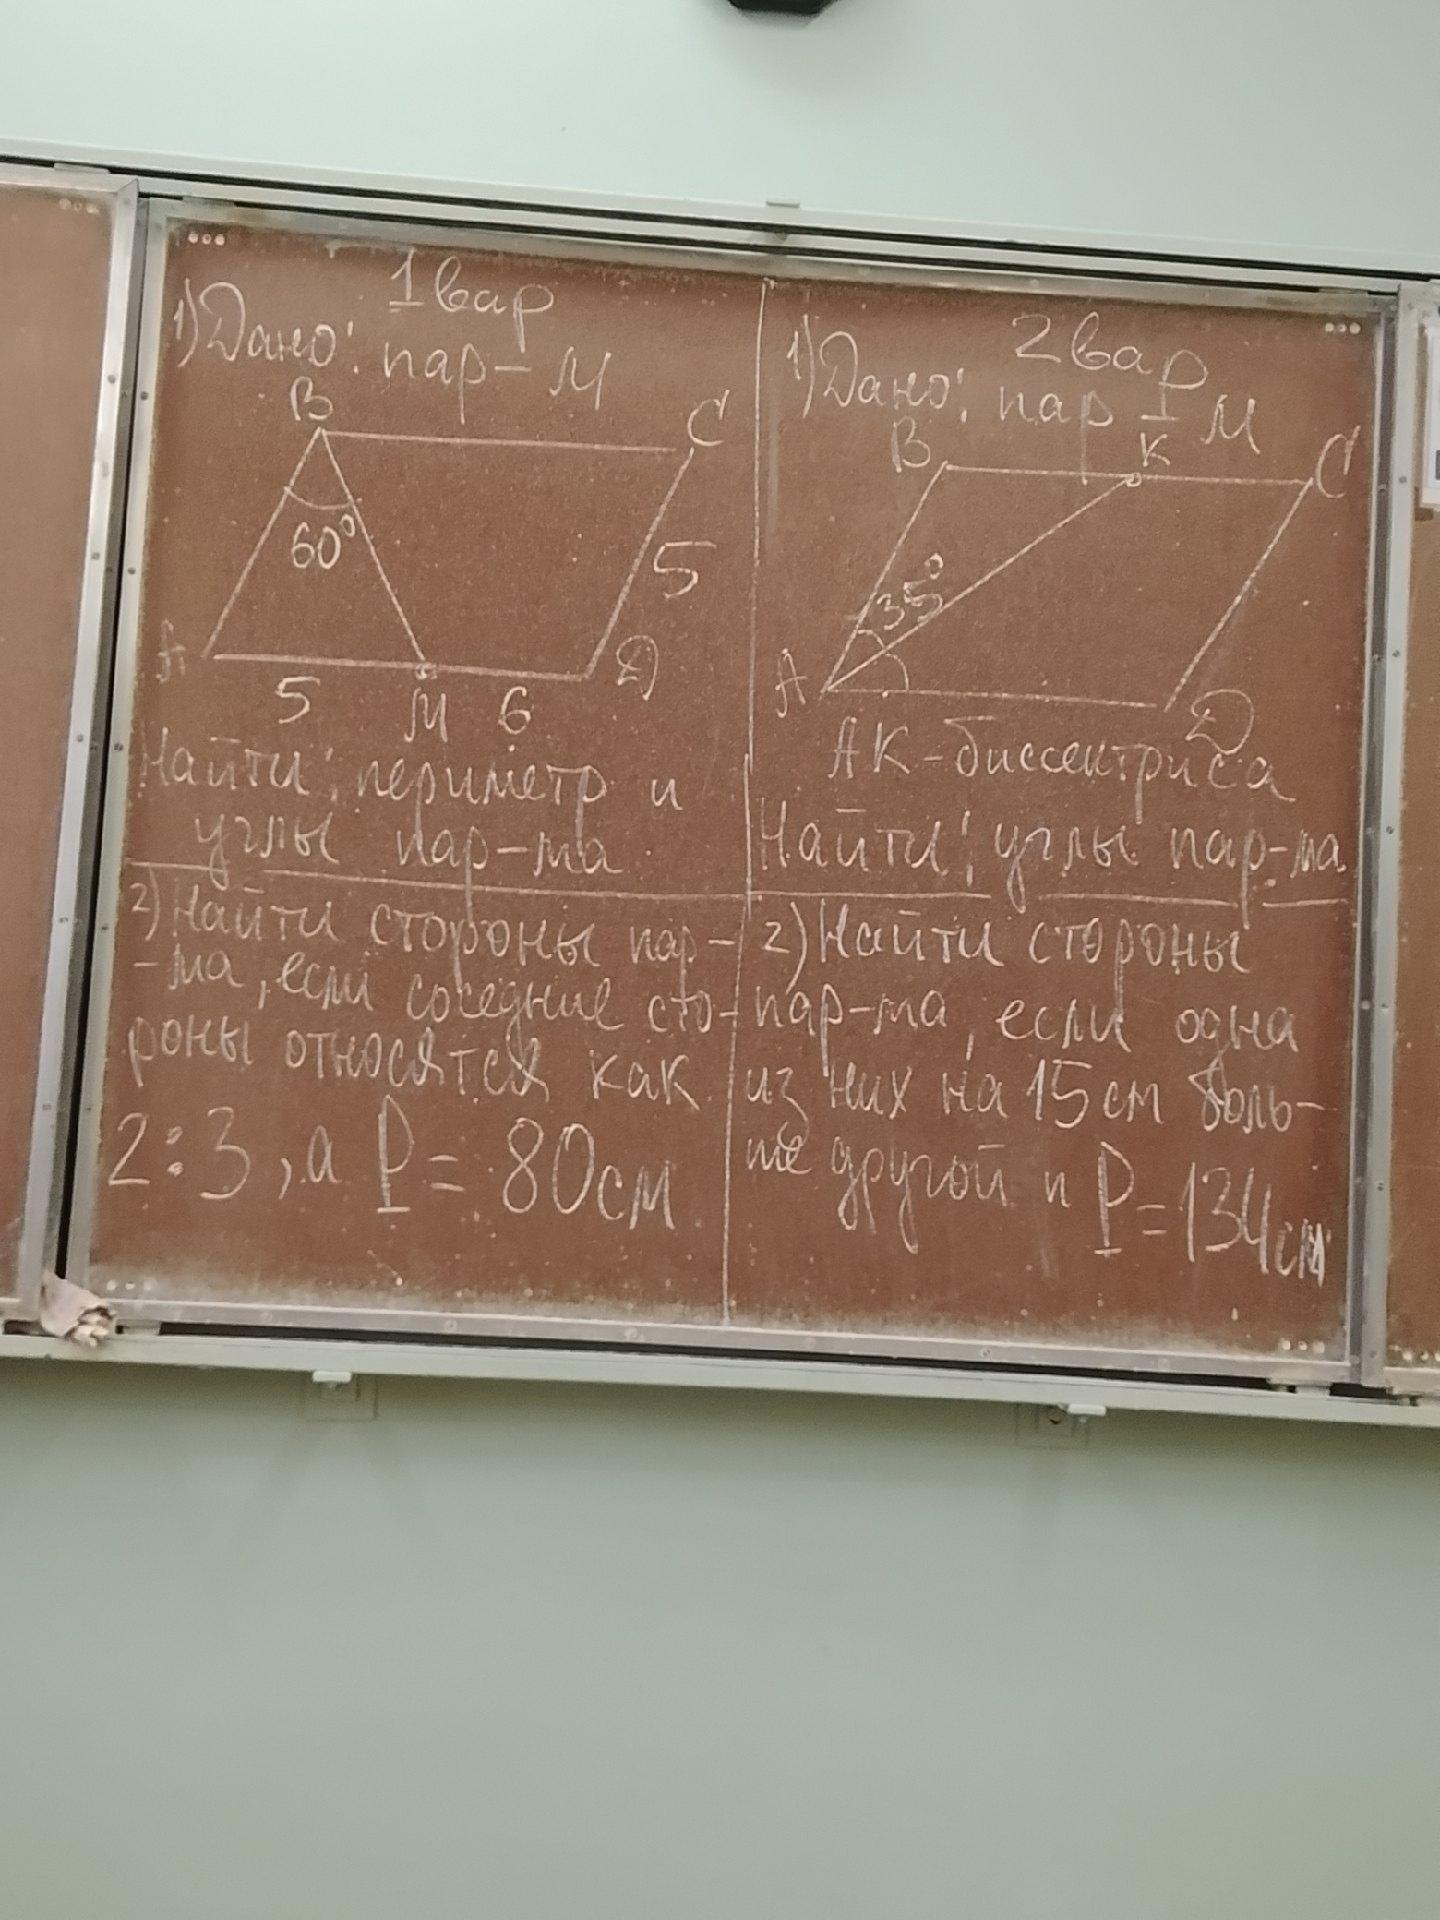 1 вар
1) Дано: пар-м
B
C
60°
5
A
D
5
M
6
Найти: периметр и
углы пар-ма.
2) Найти стороны пар-
-ма, если соседние сто-
роны относятся как
2:3, а P = 80 см
2 вар
1) Дано: пар-м
B
K
C
35°
A
D
AK - биссектриса
Найти: углы пар-ма
2) Найти стороны
пар-ма, если одна
из них на 15 см боль-
ше другой и P = 134 см